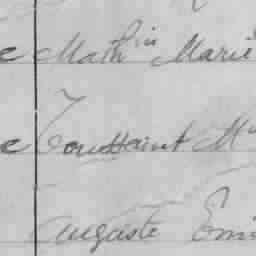 e Math.in Marie
e Toussaint M
Auguste Emi